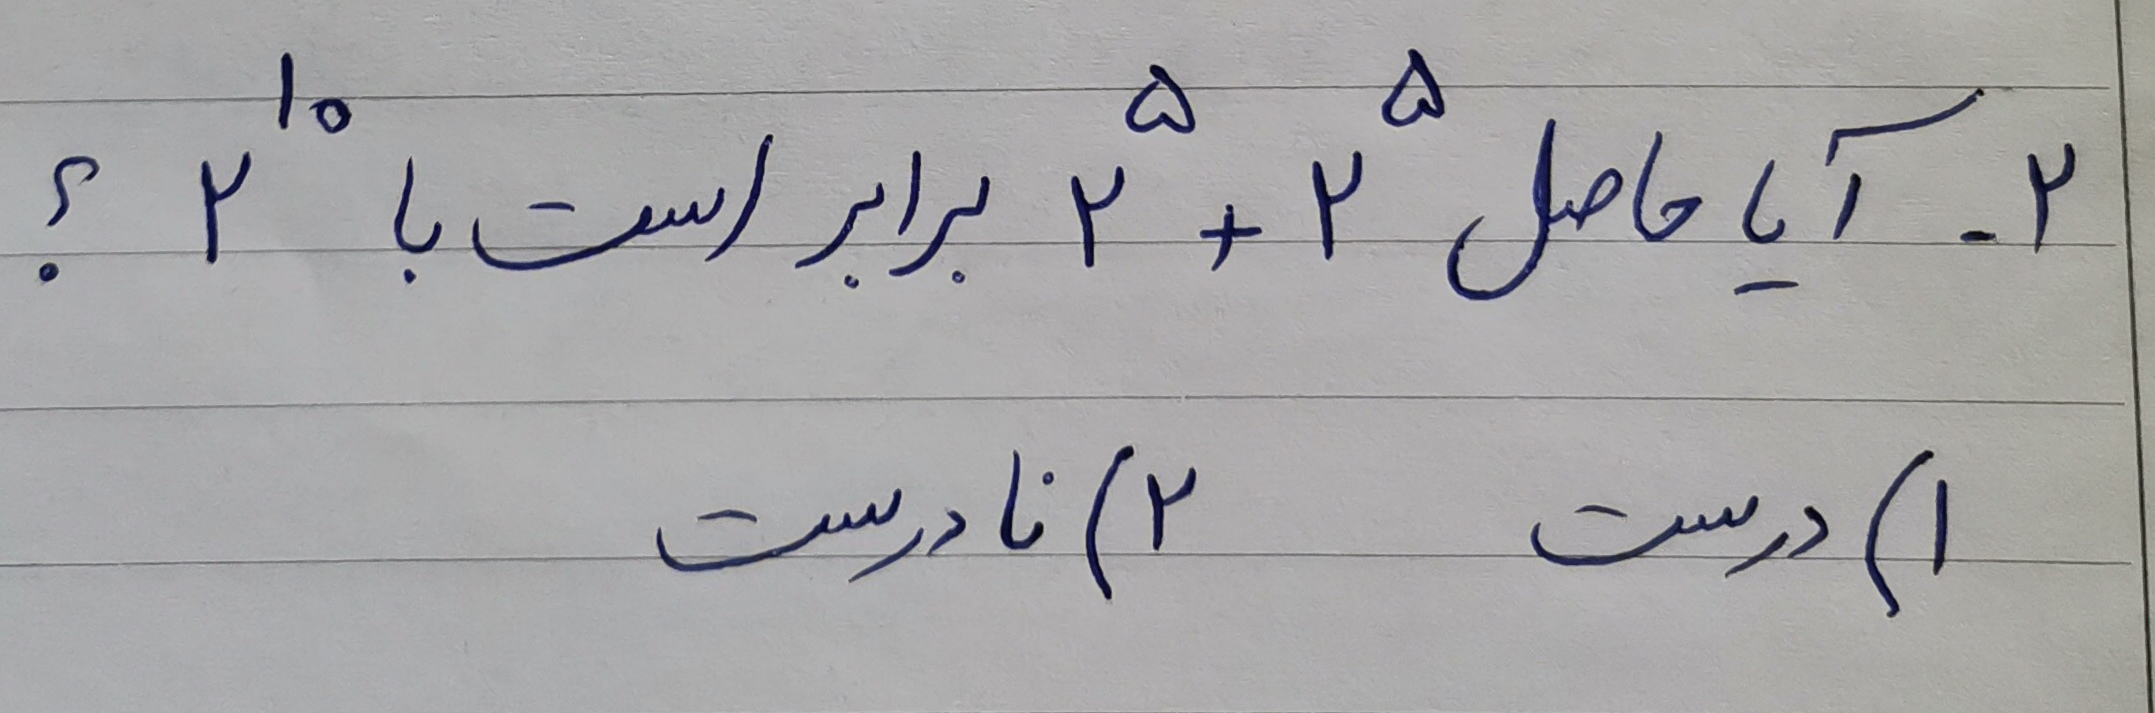 ۲- آیا حاصل ۲^۵ + ۲^۵ برابر است با ۲^۱۰ ؟
۱) درست ۲) نادرست